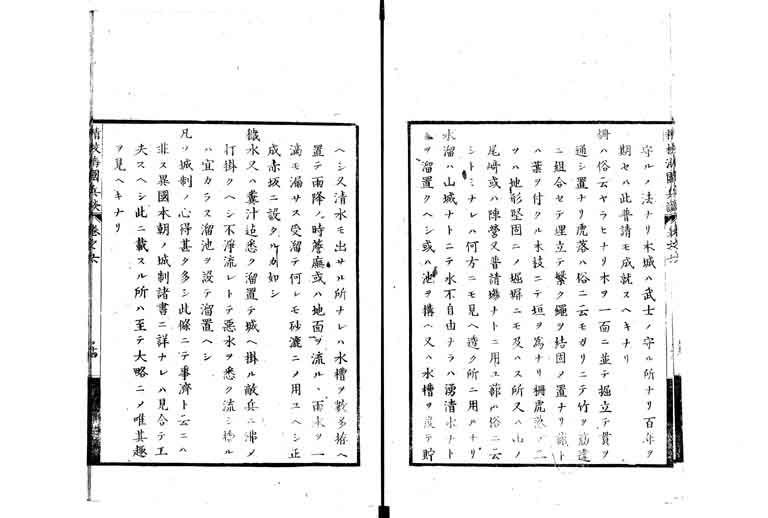 守ルノ法ナリ本城ハ武士ノ守ル所ナリ百年ヲ
期セハ此普請モ成就スヘキナリ
柵ハ俗云ヤラヒナリ木ヲ一面ニ並テ掘立テ貫ヲ
通シ置ナリ虎落ハ俗ニ云モガリニテ竹ヲ筋違
ニ組合セテ埋立テ繁ク繩ヲ結固メ置ナリ藤ト
ハ葉ヲ付タル木枝ニテ垣ヲ為ナリ柵虎落ノ二
ツハ地形堅固ニノ堀塀ニモ及ハス所又ハ山ノ
尾崎或ハ陣營又普請塲ナトニ用ユ藤ハ俗ニ云
シトミナレハ何方ニモ見ヘ透ク所ニ用ルナリ
水溜ハ山城ナトニテ水不自由ナラハ湧清水ナト
ヲ溜置クヘシ或ハ池ヲ構ヘ又ハ水槽ヲ設テ貯
ヘシ又清水モ出サル所ナレハ水槽ヲ數多拵ヘ
置テ雨降ノ時簷廡或ハ地面ヲ流ル丶雨水ヲ一
滴モ漏サス受溜テ何レモ砂漉ニノ用ユヘシ正
成赤坂ニ設タルカ如シ
糞汁迄悉ク溜置テ城ヘ掛ル敵兵ニ沸ノ
打掛クヘシ不淨流レトテ惡水ヲ悉ク流シ捨ル
ハ宜カラス溜池ヲ設テ溜置ヘシ
凡ソ城制ノ心得甚タ多シ此條ニテ事濟ト云ニハ
非ス異國本朝ノ城制諸書ニ詳ナレハ見合テ工
夫スヘシ此ニ載スル所ハ至テ大略ニノ唯其趣
ヲ見ヘキナリ
精校海國兵談 卷之六